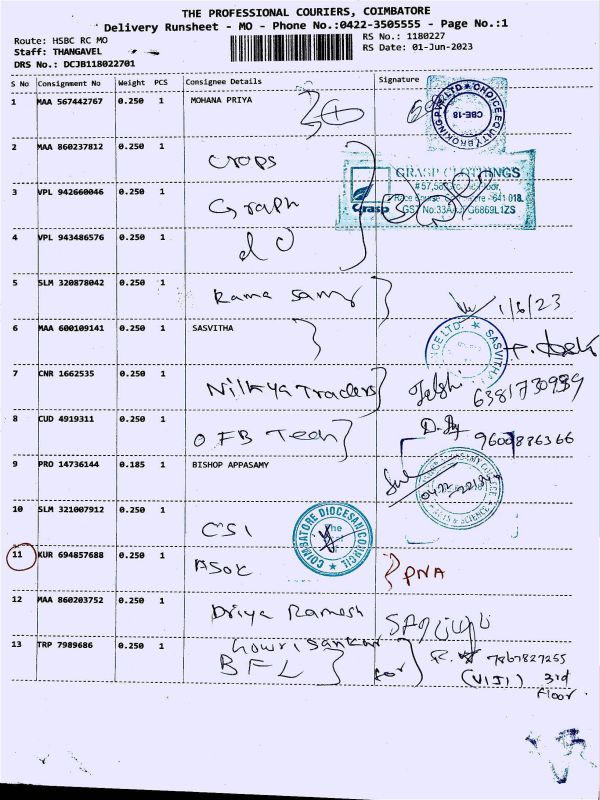 THE PROFESSIONAL COURIERS, COIMBATORE
Delivery Runsheet - MO - Phone No.:0422-3505555 - Page No.:1
Route: HSBC RC MO
Staff: THANGAVEL
DRS No.: DCJB118022701
RS No.: 1180227
RS Date: 01-Jun-2023
S No Consignment No Weight PCS Consignee Details Signature
1 MAA 567442767 0.250 1 MOHANA PRIYA
CHOICE EQUITY BROKING PVT LTD CBE-18
2 MAA 860237812 0.250 1 Crops
GRASP CLOTHINGS
Grasp
641 018.
3 VPL 942660046 0.250 1 Graph
4 VPL 943486576 0.250 1 do
5 SLM 320878042 0.250 1 Rama Samy
1/6/23
6 MAA 600109141 0.250 1 SASVITHA
7 CNR 1662535 0.250 1 Nilkya Traders
6381730989
8 CUD 4919311 0.250 1 OFB Tech
9600886366
9 PRO 14736144 0.185 1 BISHOP APPASAMY
ARTS & SCIENCE
10 SLM 321007912 0.250 1 CSI
COIMBATORE DIOCESAN COUNCIL
11 KUR 694857688 0.250 1 ASok PNA
12 MAA 860203752 0.250 1 Driya Ramesh
13 TRP 7989686 0.250 1 Gowri Sankar
BFL for 7867827255
(VIJI) 3rd
Floor